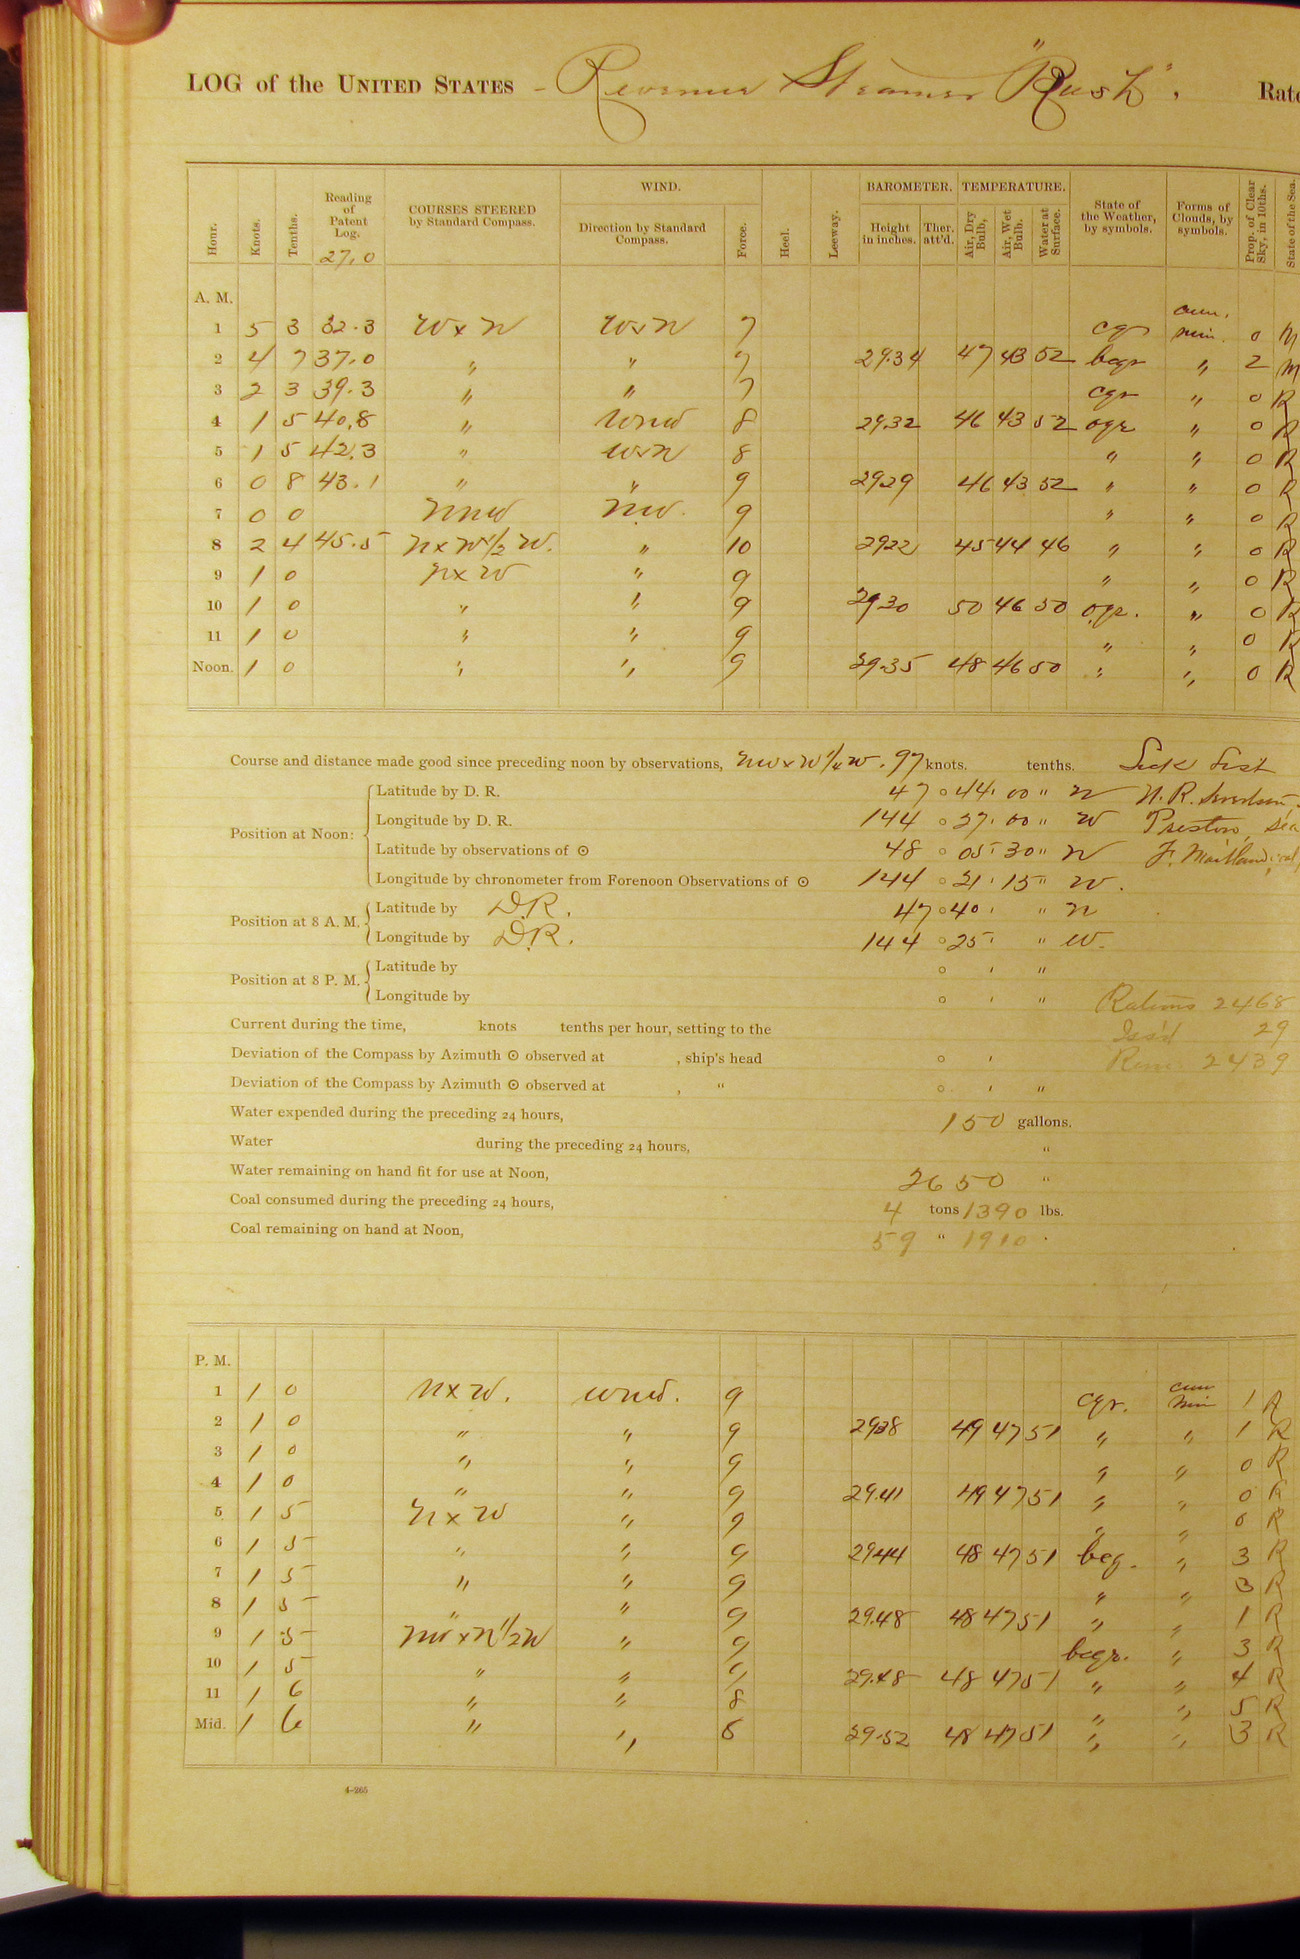 LOG of the UNITED STATES - Revenue Steamer "Rush", Rate
Hour. Knots. Tenths. Reading of Patent Log. 27.0 COURSES STEERED by Standard Compass. WIND. Direction by Standard Compass. Force. Heel. Leeway. BAROMETER. Height in inches. Ther. att'd. TEMPERATURE. Air, Dry Bulb, Air, Wet Bulb. Water at Surface. State of the Weather, by symbols. Forms of Clouds, by symbols. Prop. of Clear Sky, in 10ths. State of the Sea.
A. M.
1 5 3 32.3 W x N W x N 7 cqr cum. nim. 0 M
2 4 7 37.0 " " 7 29.34 47 43 52 bcqr " 2 M
3 2 3 39.3 " " 7 cqr " 0 R
4 1 5 40.8 " WNW 8 29.32 46 43 52 oqr " 0 R
5 1 5 42.3 " W x N 8 " " 0 R
6 0 8 43.1 " " 9 29.29 46 43 52 " " 0 R
7 0 0 NNW NW. 9 " " 0 R
8 2 4 45.5 N x W 1/2 W. " 10 29.22 45 44 46 " " 0 R
9 1 0 N x W " 9 " " 0 R
10 1 0 " " 9 29.30 50 46 50 oqr. " 0 R
11 1 0 " " 9 " " 0 R
Noon. 1 0 " " 9 29.35 48 46 50 " " 0 R
Course and distance made good since preceding noon by observations, NW x W 1/4 W. 97 knots. tenths. Sick List
Position at Noon:
Latitude by D. R. 47 ° 44 ' 00 " N N. R.
Longitude by D. R. 144 ° 27 ' 00 " W Preston, sea
Latitude by observations of ☉ 48 ° 05 ' 30 " N F. Maitland
Longitude by chronometer from Forenoon Observations of ☉ 144 ° 21 ' 15 " W.
Position at 8 A. M.
Latitude by D.R. 47 ° 40 ' " N
Longitude by D.R. 144 ° 25 ' " W.
Position at 8 P. M.
Latitude by ° ' "
Longitude by ° ' " Rations 2468
Current during the time, knots tenths per hour, setting to the Iss'd 29
Deviation of the Compass by Azimuth ☉ observed at , ship's head ° ' Rem. 2439
Deviation of the Compass by Azimuth ☉ observed at , " ° ' "
Water expended during the preceding 24 hours, 150 gallons.
Water during the preceding 24 hours, "
Water remaining on hand fit for use at Noon, 2650 "
Coal consumed during the preceding 24 hours, 4 tons 1390 lbs.
Coal remaining on hand at Noon, 59 " 1910 "
P. M.
1 1 0 N x W. WNW. 9 cqr. cum nim 1 R
2 1 0 " " 9 29.38 49 47 51 " " 1 R
3 1 0 " " 9 " " 0 R
4 1 0 " " 9 29.41 49 47 51 " " 0 R
5 1 5 N x W " 9 " " 0 R
6 1 5 " " 9 29.44 48 47 51 bcq. " 3 R
7 1 5 " " 9 " " 3 R
8 1 5 " " 9 29.48 48 47 51 " " 1 R
9 1 5 NW x N 1/2 N " 9 bcqr. " 3 R
10 1 5 " " 9 29.48 48 47 51 " " 4 R
11 1 6 " " 8 " " 5 R
Mid. 1 6 " " 8 29.52 48 47 51 " " 3 R
4-265